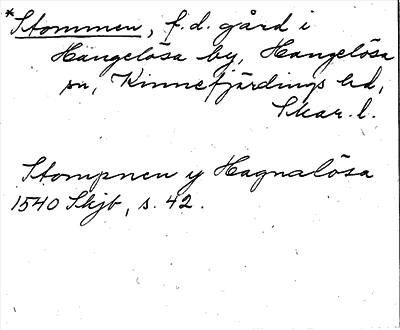 *Stommen, f.d. gård i
Hangelösa by, Hangelösa
sn, Kinnefjärdings hd,
Skar. l.
Stompnen y Hagnalösa
1540 Skjb, s. 42.